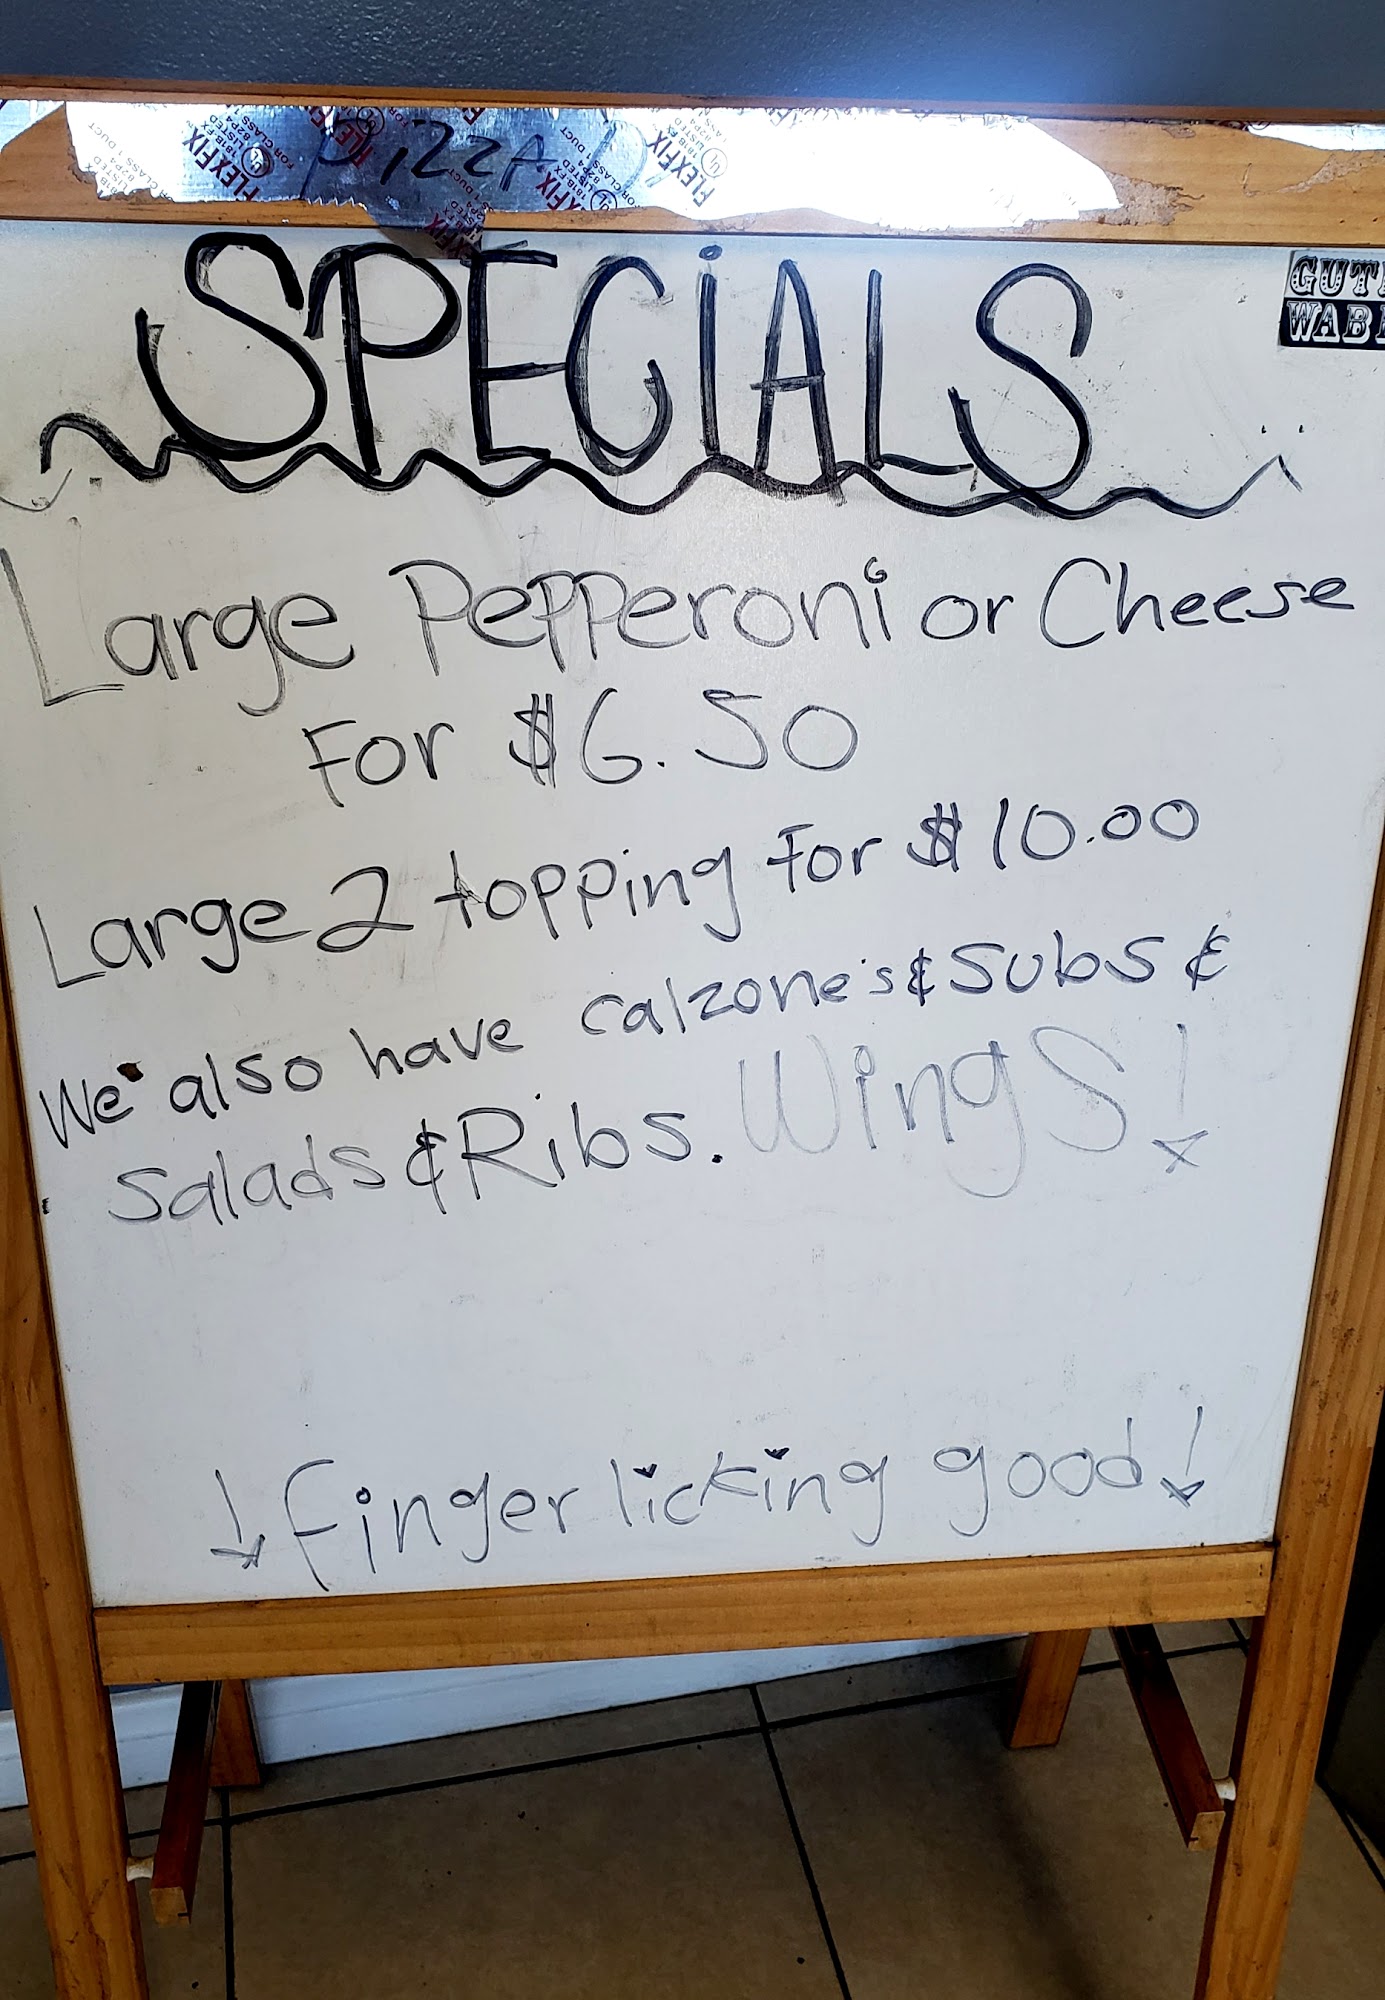 PizzA
SPECiALS
GUT
WAB
Large Pepperoni or Cheese
For $6.50
Large 2 topping For $10.00
We also have calzone's & Subs &
Salads & Ribs. WingS!
finger licking good!